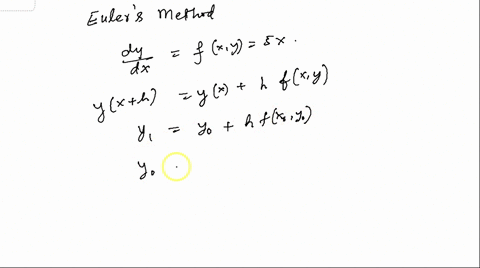 Euler's Method
dy/dx = f(x,y) = 5x.
y(x+h) = y(x) + h f(x,y)
y₁ = y₀ + h f(x₀,y₀)
y₀